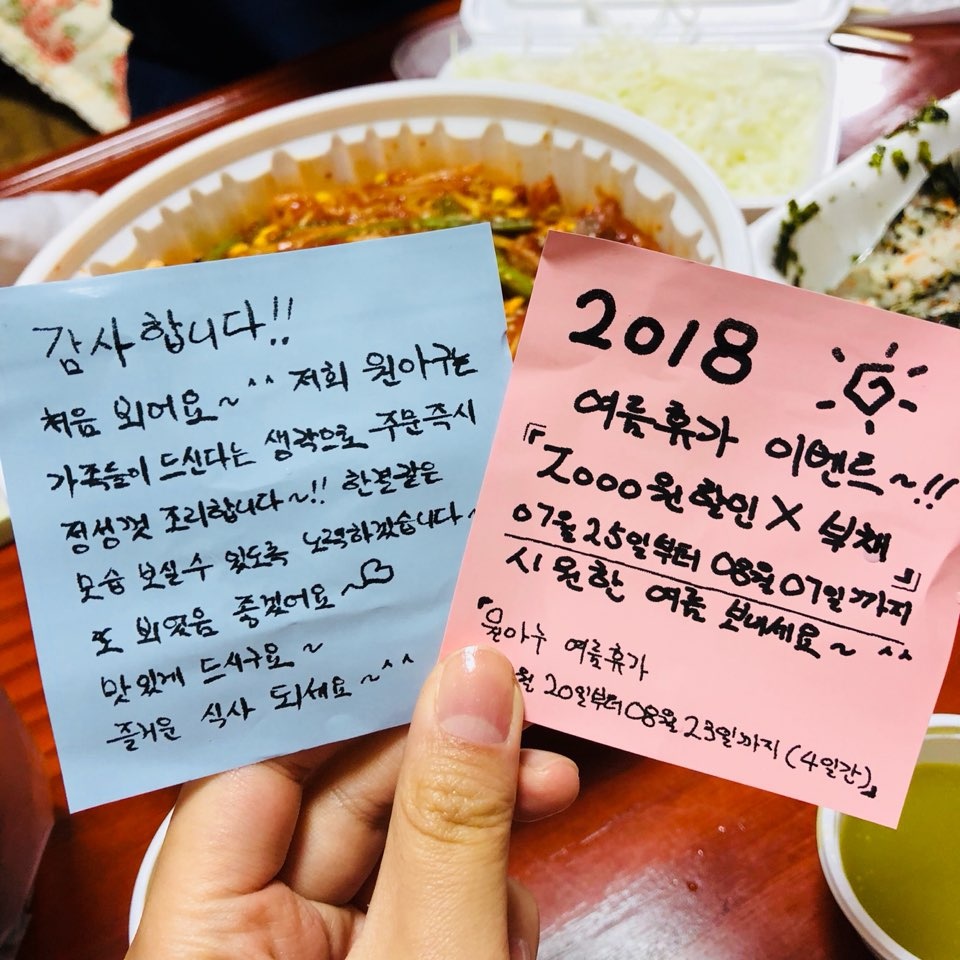 감사합니다!!
처음 뵈어요~ ^^ 저희 원아구는
가족들이 드신다는 생각으로 주문즉시
정성껏 조리합니다~!! 한결같은
모습 보실수 있도록 노력하겠습니다~
또 뵈었음 좋겠어요~♡
맛있게 드시구요~
즐거운 식사 되세요~^^
2018
여름휴가 이벤트~!!
『2000원할인 X 부채』
07월 25일부터 08월 07일까지
시원한 여름 보내세요~ ^^
『원아구 여름휴가
월 20일부터 08월 23일까지 (4일간)』